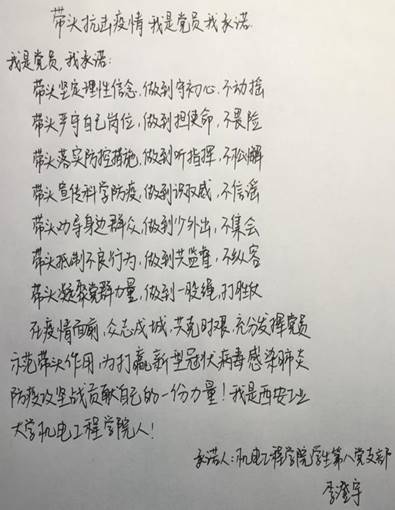 带头抗击疫情 我是党员我承诺
我是党员,我承诺:
带头坚定理性信念,做到守初心、不动摇
带头严守自己岗位,做到担使命、不畏险
带头落实防控措施,做到听指挥、不松懈
带头宣传科学防疫,做到识权威、不信谣
带头劝导身边群众,做到少外出、不集会
带头抵制不良行为,做到共监督、不纵容
带头凝聚党群力量,做到一股绳、打胜仗
在疫情面前,众志成城,共克时艰,充分发挥党员
示范带头作用,为打赢新型冠状病毒感染肺炎
防疫攻坚战贡献自己的一份力量!我是西安工业
大学机电工程学院人!
承诺人:机电工程学院学生第八党支部
李澄宇